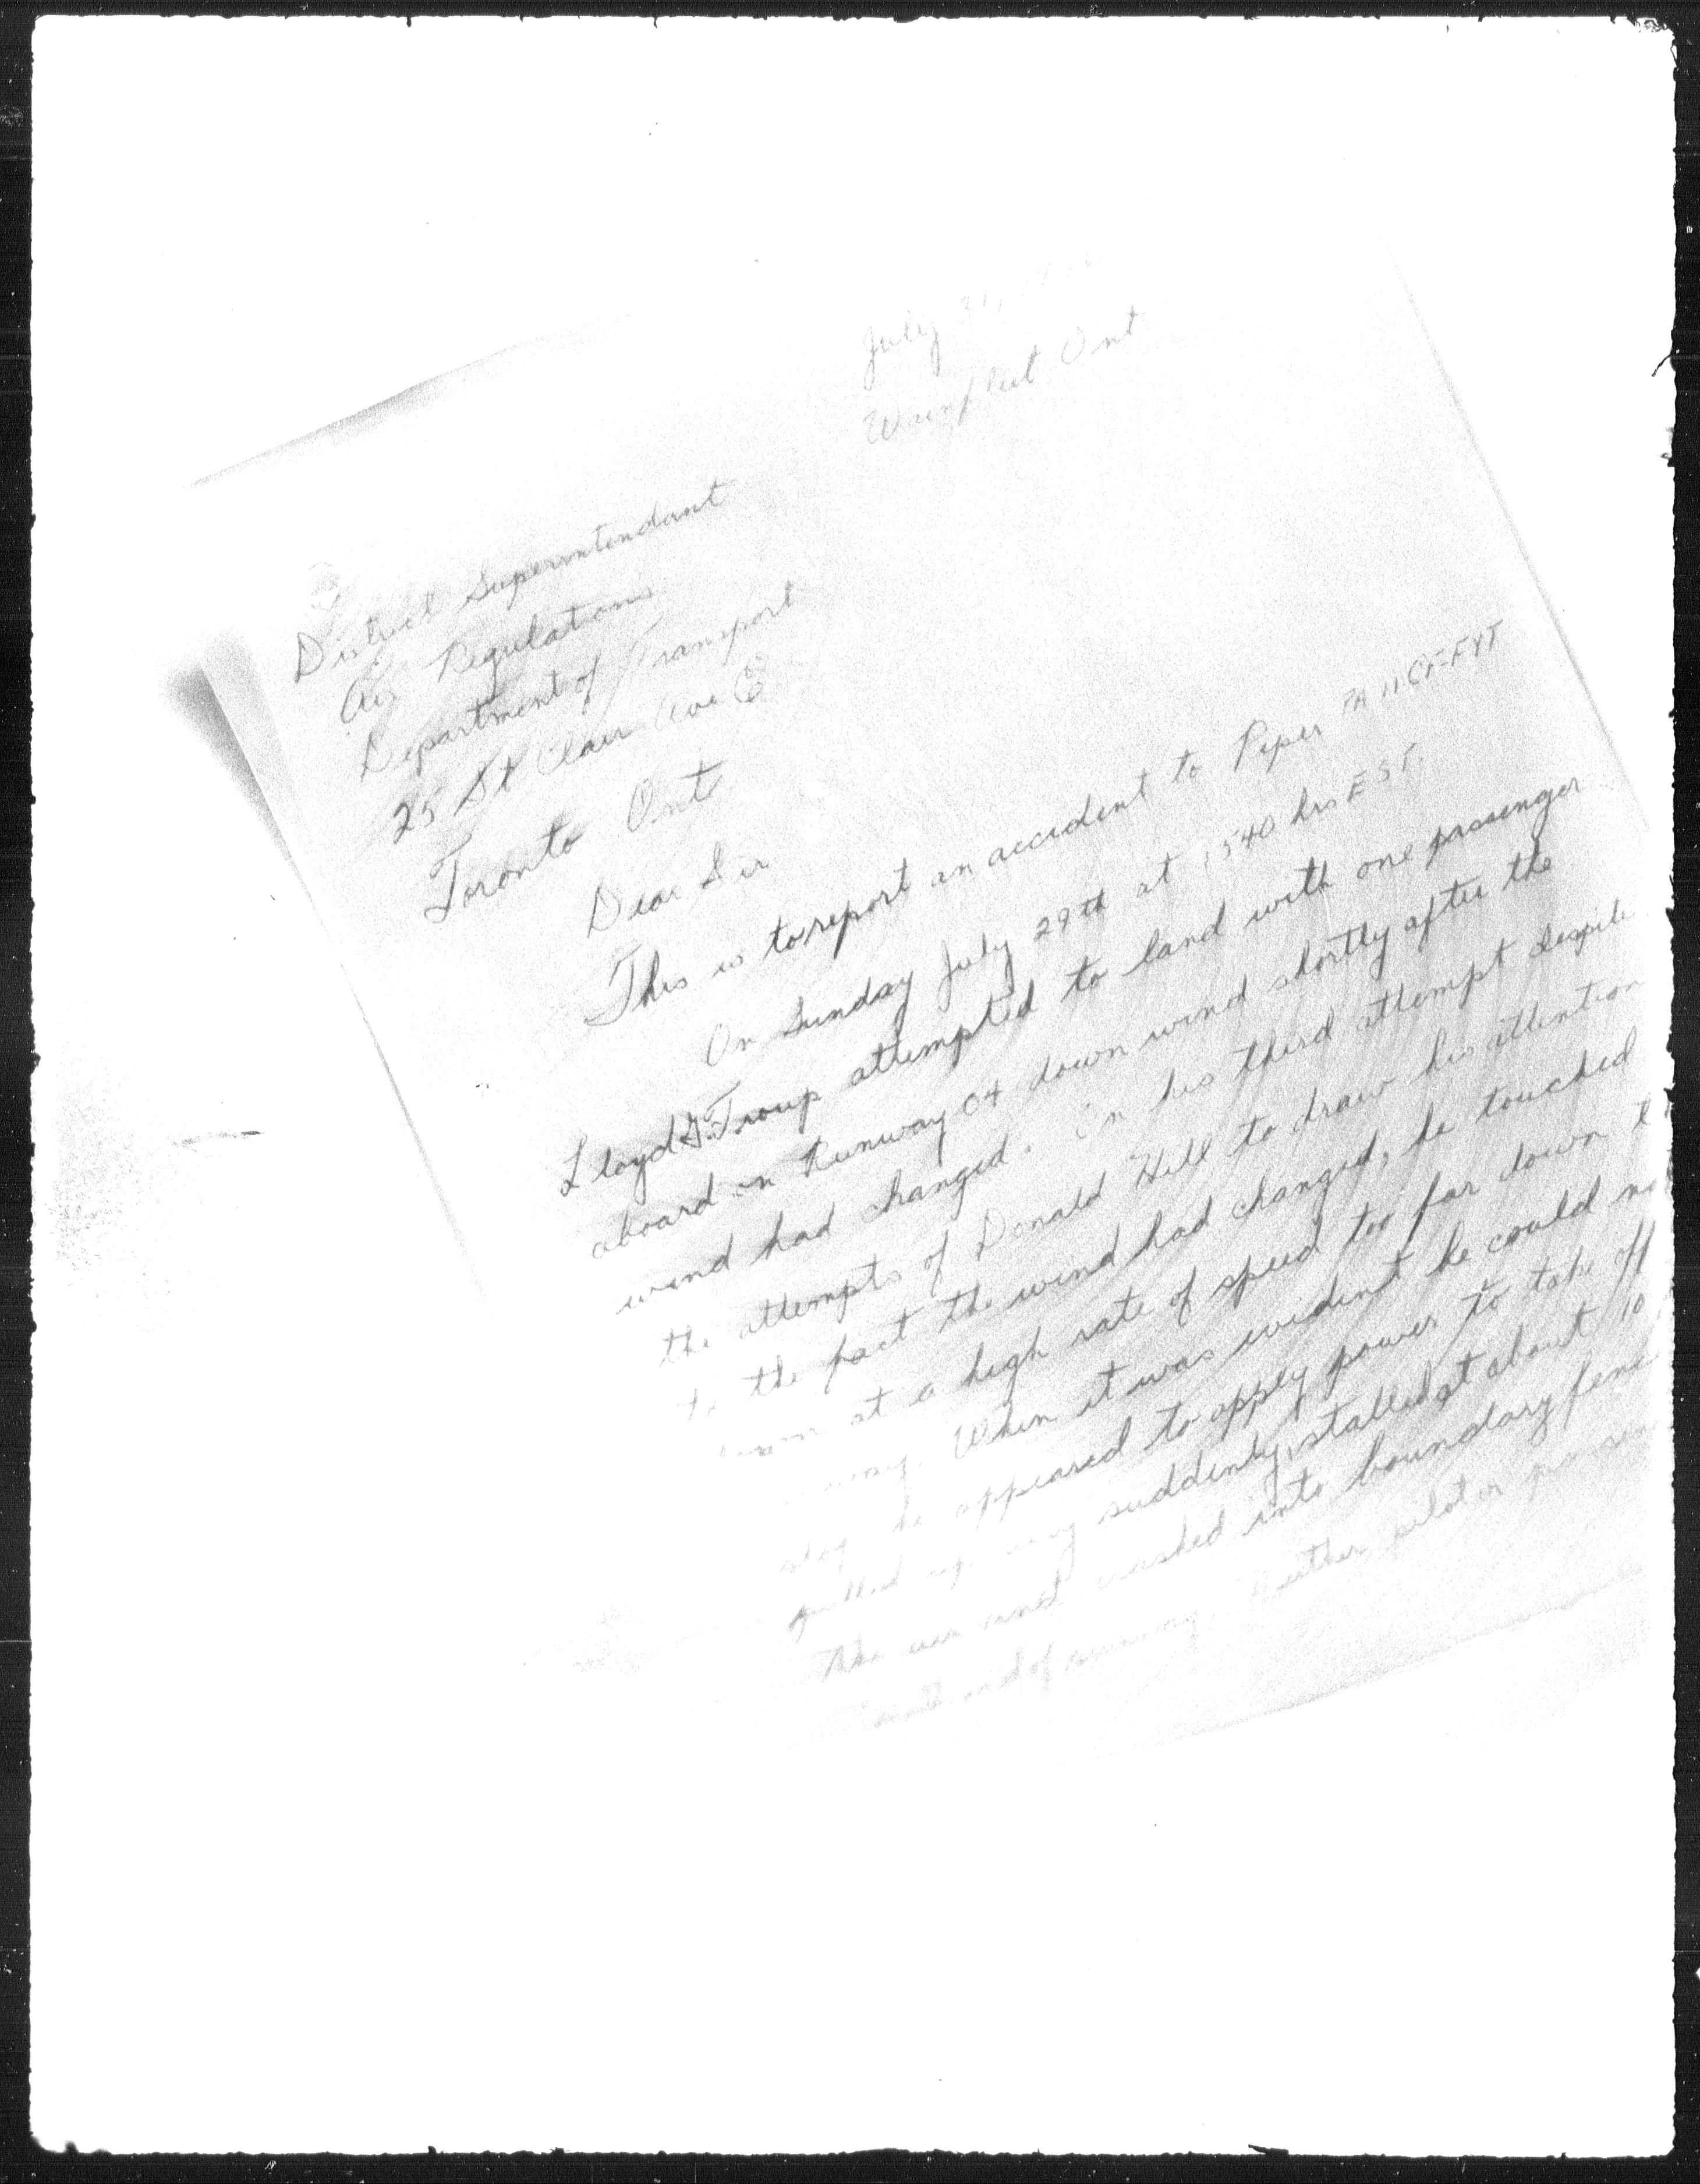 July 31,
Wainfleet Ont
District Superintendant
Air Regulations
Department of Transport
25 St Clair Ave E
Toronto Ont
Dear Sir
This is to report an accident to Piper PA 11 CF-FYT
On Sunday July 29th at 1540 hrs E S T.
Lloyd G. Troup attempted to land with one passenger
aboard on Runway 04 down wind shortly after the
wind had changed. On his third attempt despite
the attempts of Donald Hill to draw his attention
to the fact the wind had changed, he touched
down at a high rate of speed too far down
When it was evident he could
stop he appeared to apply power to take off
pulled up very suddenly, stalled at about 10
the air and crashed into boundary
end of runway. Neither pilot or